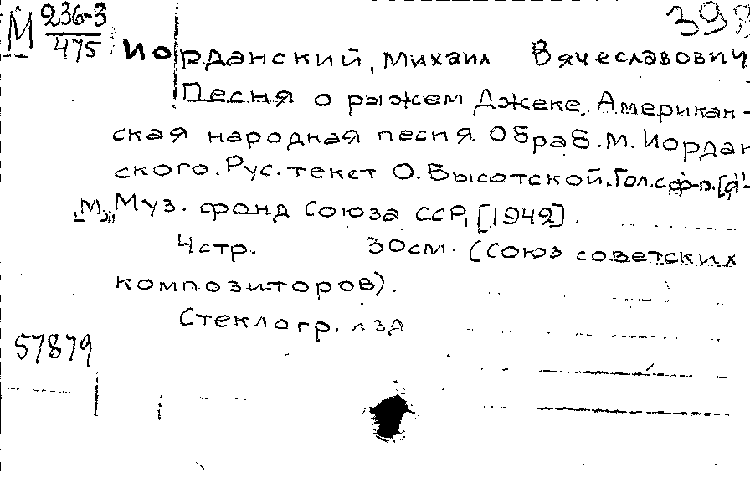 М 236-3/475
398
Иорданский, Михаил Вячеславович
Песня о рыжем Джеке. Американ-
ская народная песня. Обраб. М. Иордан
ского. Рус. текст О. Высотской. Гол. с ф-п. [d'-
"М." Муз. фонд Союза ССР, [1949].
4 стр. 30 см. (Союз советских
композиторов).
Стеклогр. изд
57879